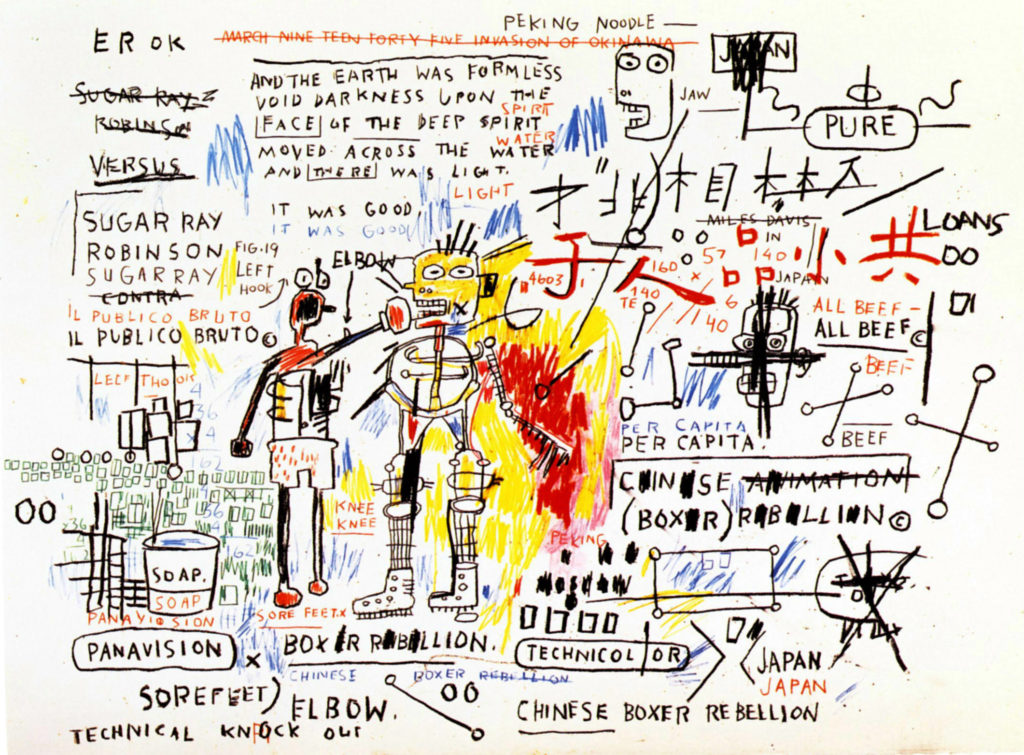 PEKING NOODLE
EROK
MARCH NINE TEEN FORTY FIVE INVASION OF OKINAWA
JAPAN
AND THE EARTH WAS FORMLESS
SUGAR RAY
VOID DARKNESS UPON THE
JAW
SPIRIT
ROBINSON
FACE OF THE DEEP SPIRIT
PURE
WATER
MOVED ACROSS THE WATER
VERSUS
AND THERE WAS LIGHT.
LIGHT
IT WAS GOOD
IT WAS GOOD
SUGAR RAY
ROBINSON
SUGAR RAY
CONTRA
IL PUBLICO BRUTO
IL PUBLICO BRUTO©
FIG.19
LEFT
HOOK
ELBOW
MILES DAVIS
IN
JAPAN
LOANS
人 品 小 共
57
140
160 x
4603
140
TE
6
140
ALL BEEF-
ALL BEEF©
BEEF
BEEF
4
36
x 4
162
4
56
4
x36
162
PER CAPITA
PER CAPITA.
CHINESE ANIMATION
(BOXER) REBELLION©
KNEE
KNEE
PEKING
MOSCOW
SOAP.
SOAP
SORE FEET.X
PANAVISION
PANAVISION
X
BOXER REBELLION.
CHINESE BOXER REBELLION
TECHNICOLOR
JAPAN
JAPAN
SOREFEET)
ELBOW.
CHINESE BOXER REBELLION
TECHNICAL KNOCK OUT